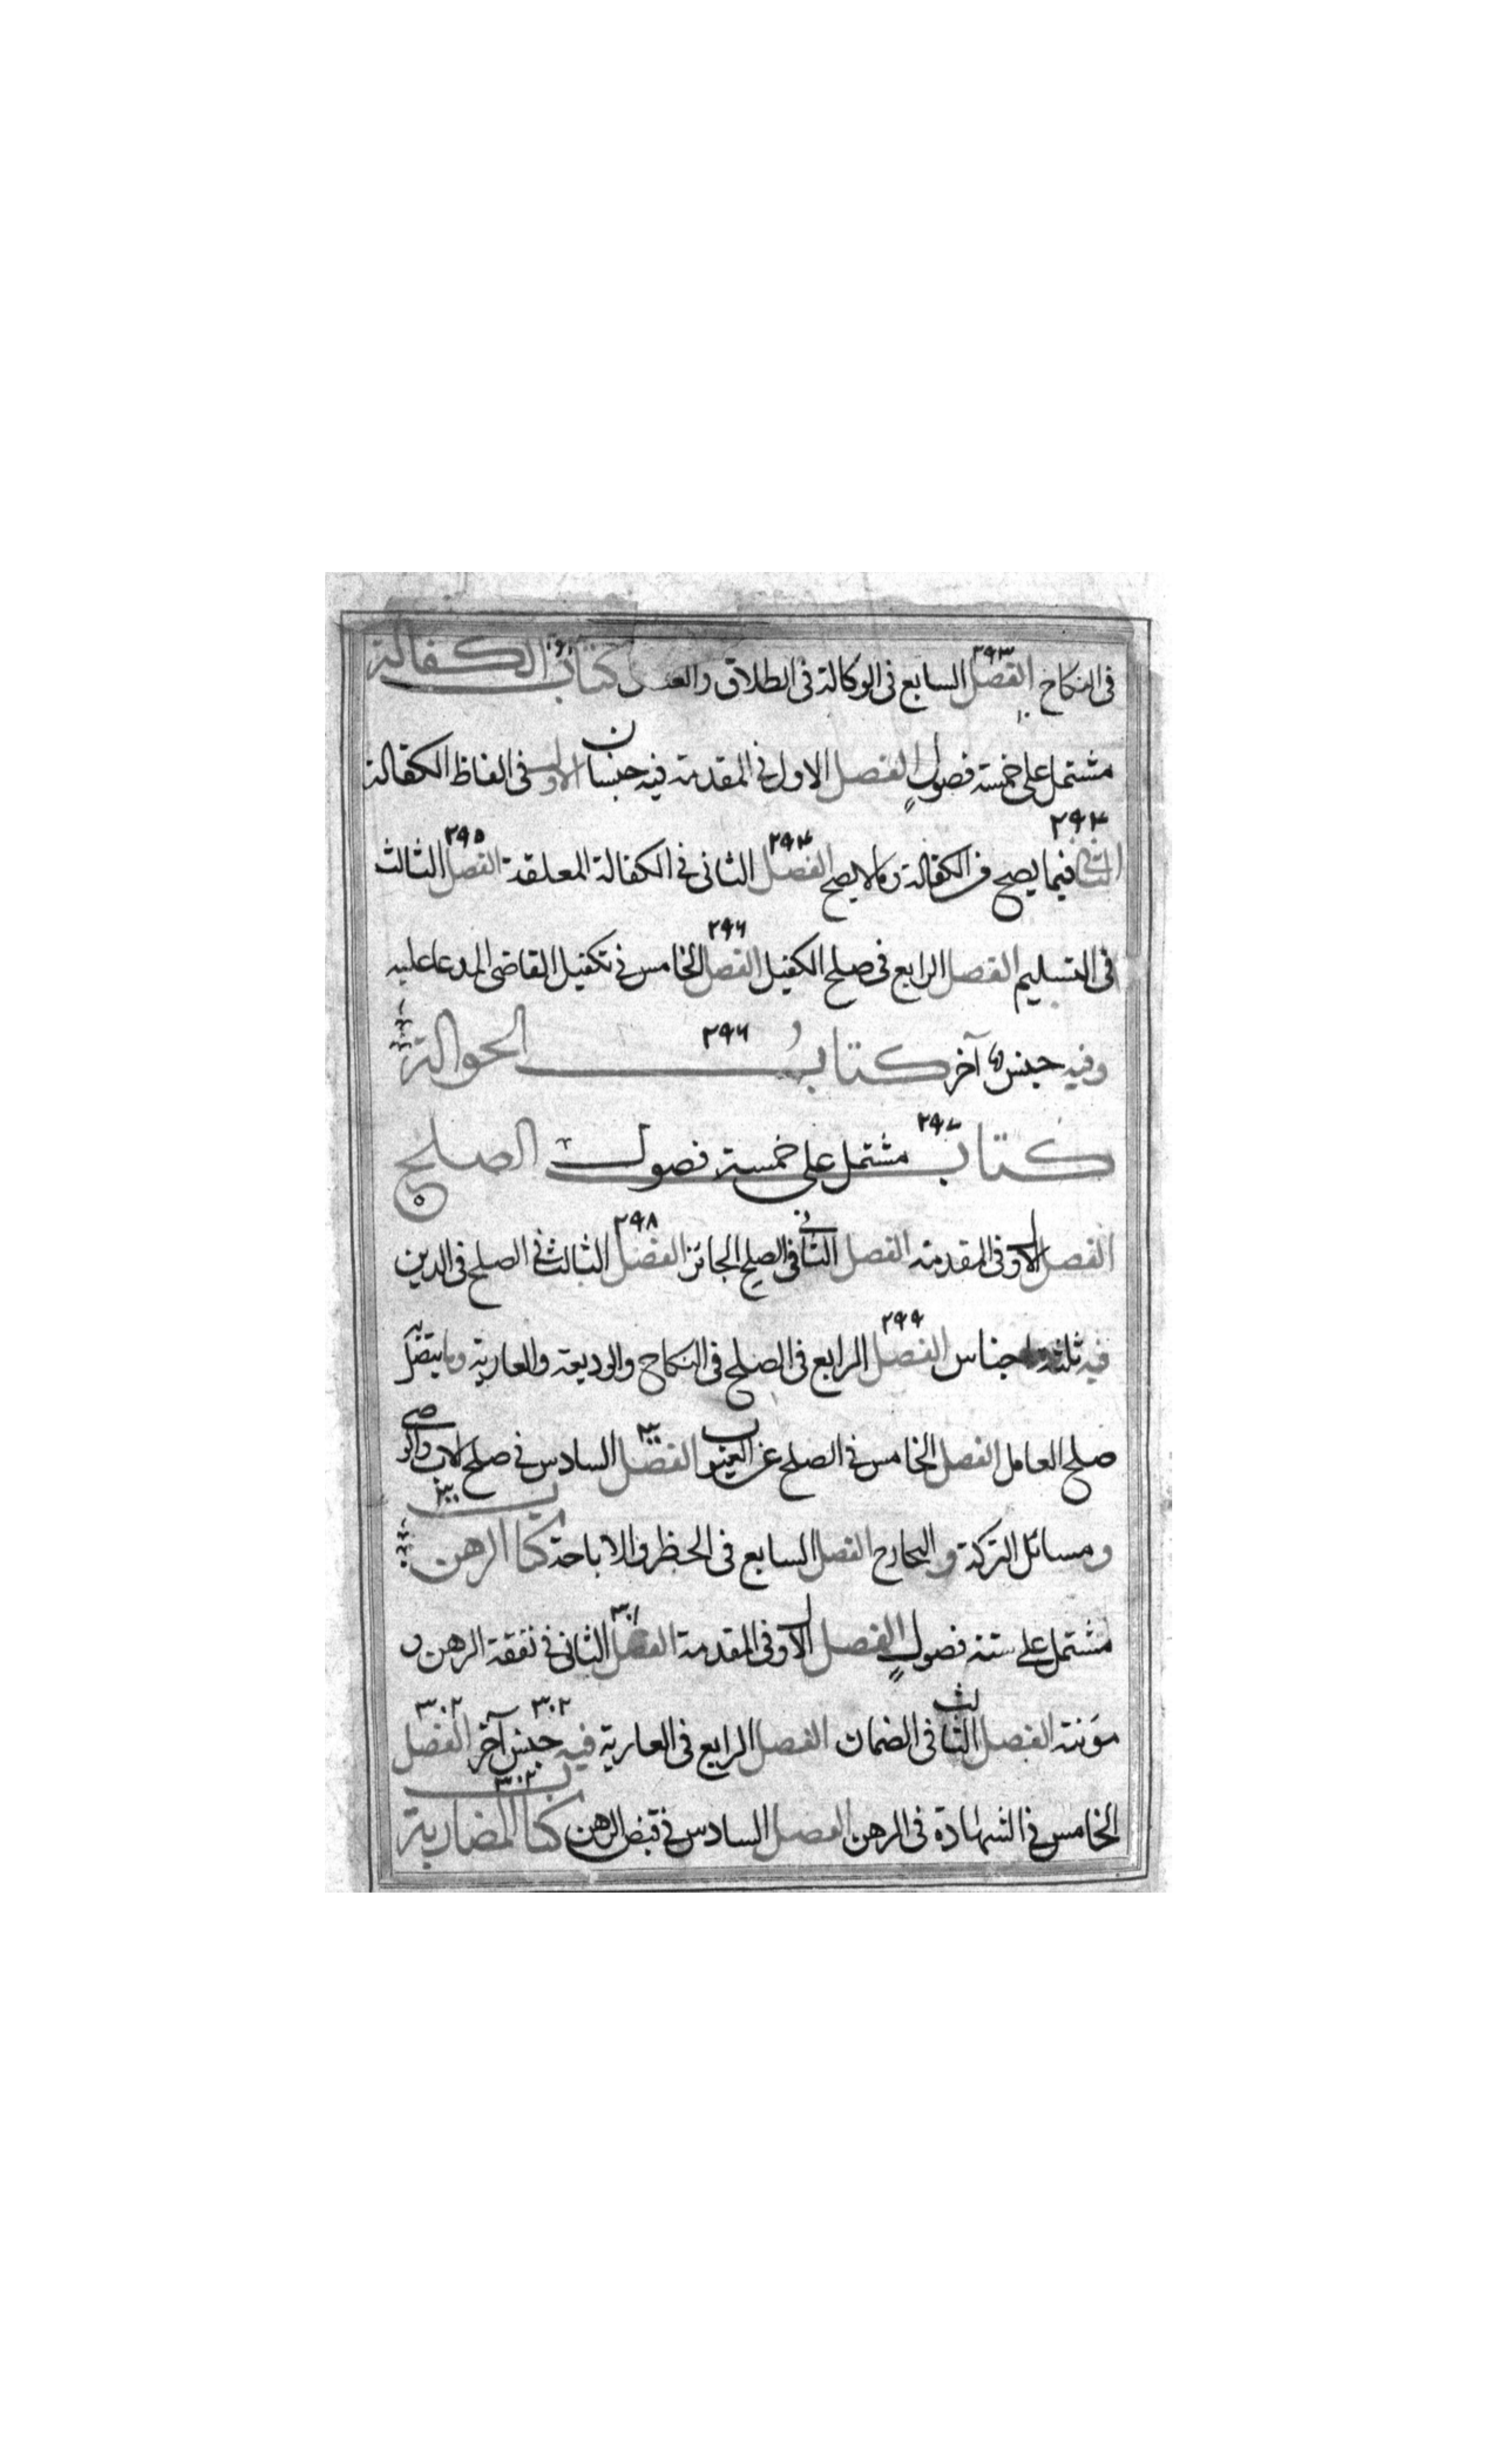 فى النكاح الفصل السابع فى الوكالة فى الطلاق كتاب الكفالة
مشتمل على خمسة فصول الفصل الاول فى المقدمة فيه جنسان الاول فى الفاظ الكفالة
الثانى فيما يصح من الكفالة وما لا يصح الفصل الثانى فى الكفالة المعلقة الفصل الثالث
فى التسليم الفصل الرابع فى صلح الكفيل الفصل الخامس فى تكفيل القاضى المدعا عليه
وفيه جنس آخر كتاب الحوالة
كتاب مشتمل على خمسة فصول الصلح
الفصل الاول فى المقدمة الفصل الثانى فى الصلح الجائز الفصل الثالث فى الصلح فى الدين
فيه ثلثة اجناس الفصل الرابع فى الصلح فى النكاح والوديعة والعارية وما يتصل به
صلح العامل الفصل الخامس فى الصلح عن العيوب الفصل السادس فى صلح الاب والوصى
ومسائل التركة و الفصل السابع فى الحظر والاباحة كتاب الرهن
مشتمل على ستة فصول الفصل الاول فى المقدمة الفصل الثانى فى نفقة الرهن و
مؤنته الفصل الثالث فى الضمان الفصل الرابع فى العارية فيه جنس آخر الفصل
الخامس فى الشهادة فى الرهن الفصل السادس فى قبض الرهن كتاب المضاربة